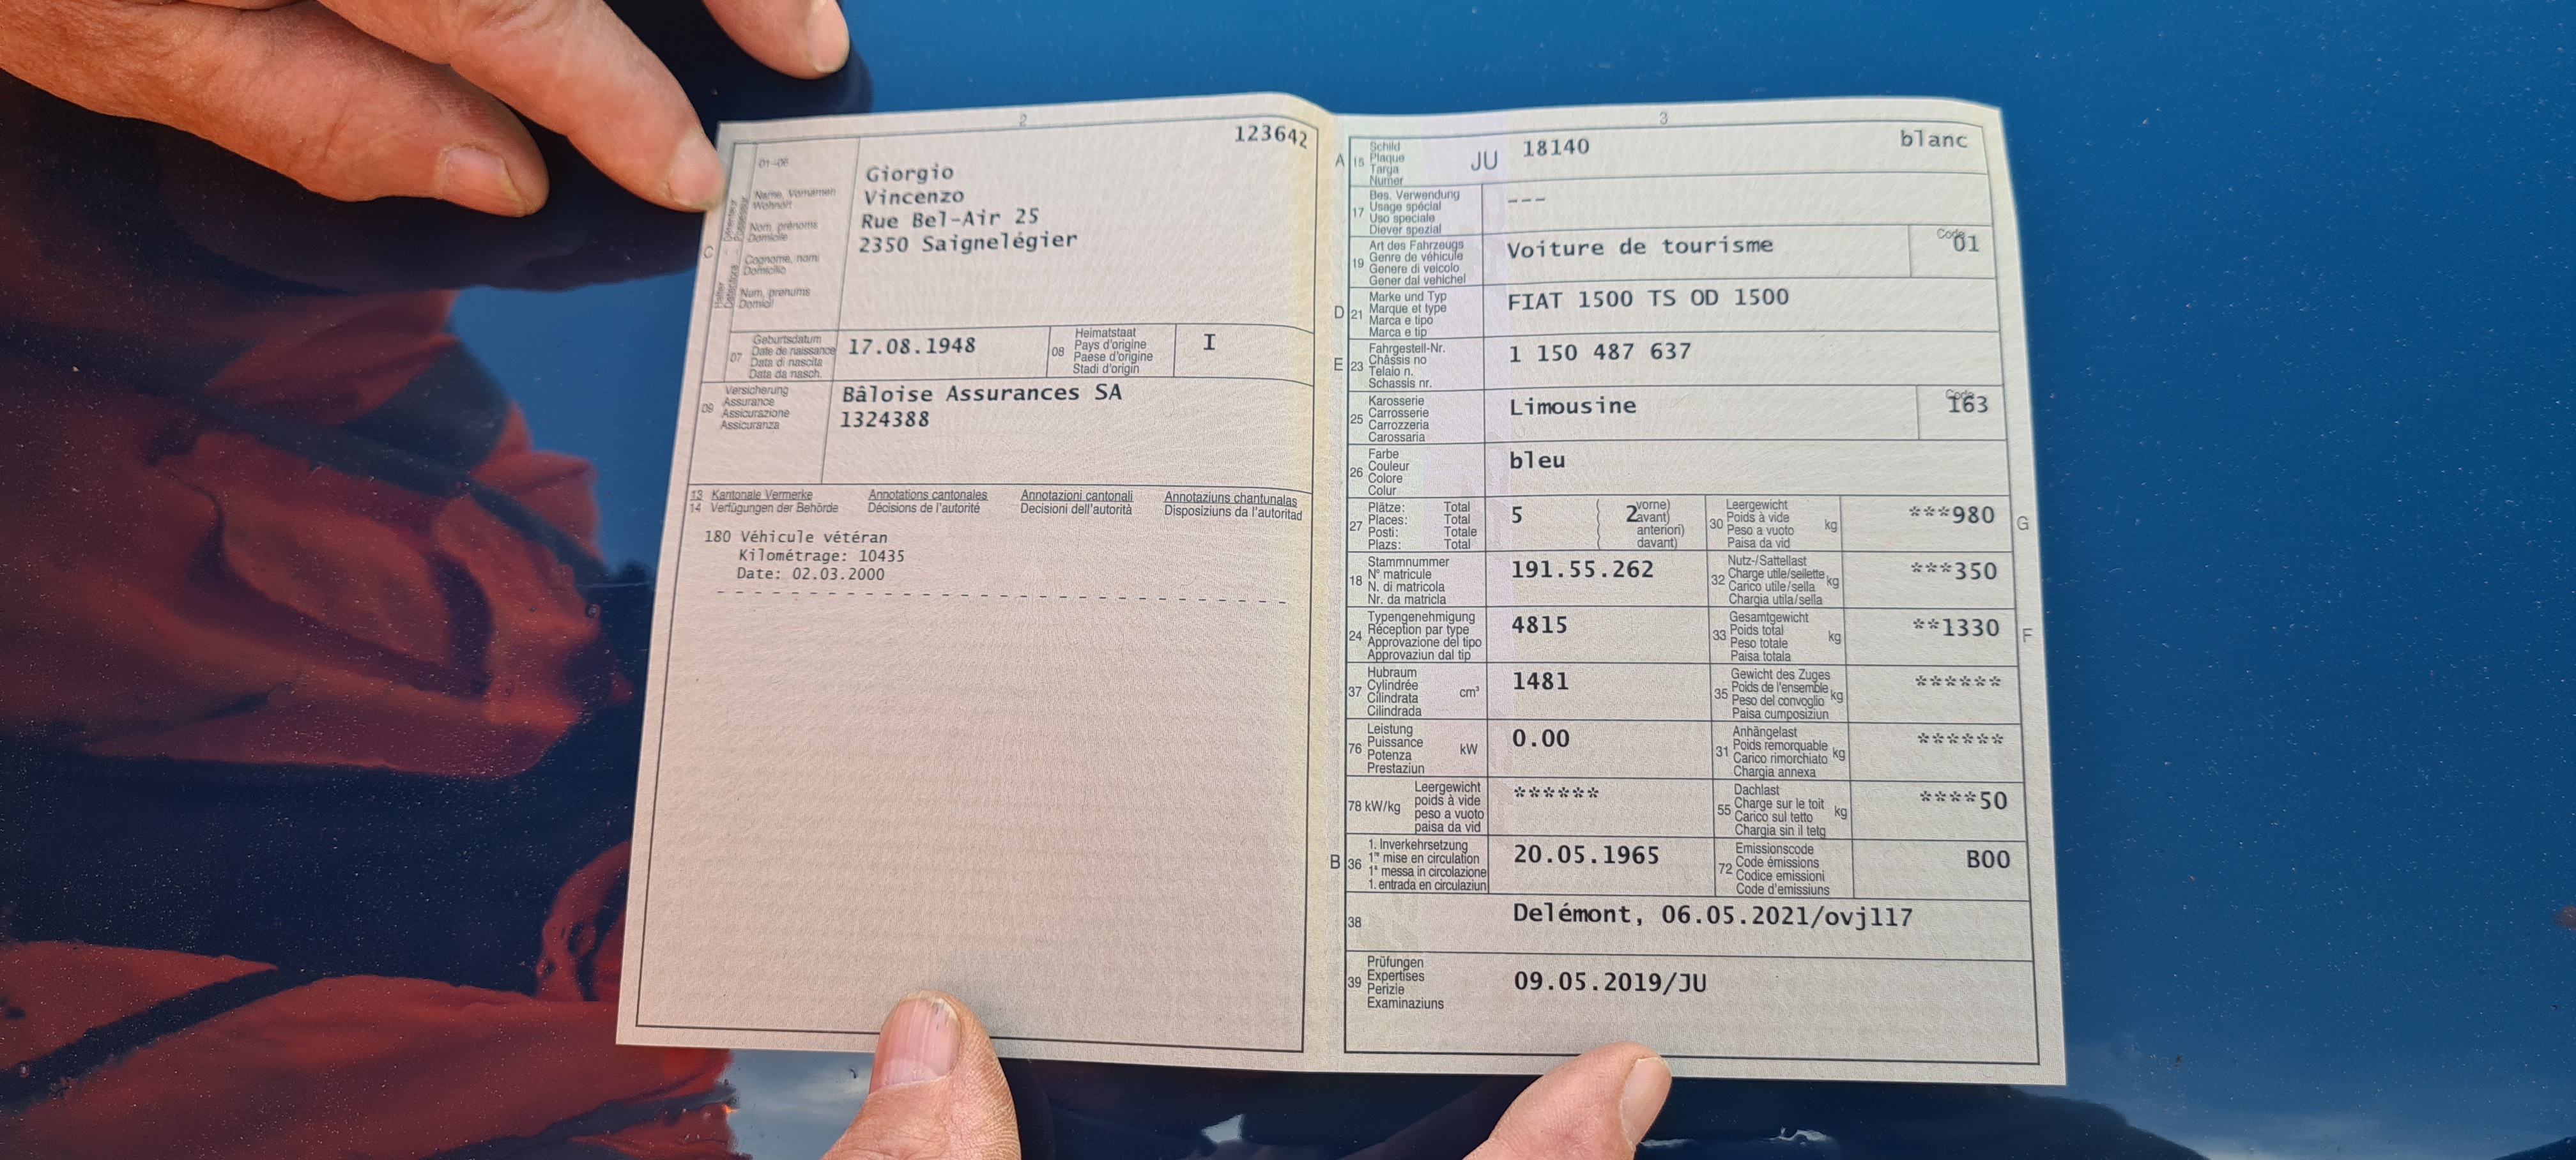 2
123642
01-06
Halter Détenteur
Detentore Possessur
C
Name, Vornamen
Wohnort
Nom, prénoms
Domicile
Cognome, nomi
Domicilio
Num, prenums
Domicil
Giorgio
Vincenzo
Rue Bel-Air 25
2350 Saignelégier
07
Geburtsdatum
Date de naissance
Data di nascita
Data da nasch.
17.08.1948
08
Heimatstaat
Pays d'origine
Paese d'origine
Stadi d'origin
I
09
Versicherung
Assurance
Assicurazione
Assicuranza
Bâloise Assurances SA
1324388
13 Kantonale Vermerke Annotations cantonales Annotazioni cantonali Annotaziuns chantunalas
14 Verfügungen der Behörde Décisions de l'autorité Decisioni dell'autorità Disposiziuns da l'autoritad
180 Véhicule vétéran
Kilométrage: 10435
Date: 02.03.2000
3
A 15
Schild
Plaque
Targa
Numer
JU 18140 blanc
17
Bes. Verwendung
Usage spécial
Uso speciale
Diever spezial
---
19
Art des Fahrzeugs
Genre de véhicule
Genere di veicolo
Gener dal vehichel
Voiture de tourisme
Code 01
D 21
Marke und Typ
Marque et type
Marca e tipo
Marca e tip
FIAT 1500 TS OD 1500
E 23
Fahrgestell-Nr.
Châssis no
Telaio n.
Schassis nr.
1 150 487 637
25
Karosserie
Carrosserie
Carrozzeria
Carossaria
Limousine
Code 163
26
Farbe
Couleur
Colore
Colur
bleu
27
Plätze: Total
Places: Total
Posti: Totale
Plazs: Total
5
2
vorne)
avant)
anteriori)
davant)
30
Leergewicht
Poids à vide
Peso a vuoto
Paisa da vid
kg
***980
G
18
Stammnummer
N° matricule
N. di matricola
Nr. da matricla
191.55.262
32
Nutz-/Sattellast
Charge utile/sellette
Carico utile/sella
Chargia utila/sella
kg
***350
24
Typengenehmigung
Réception par type
Approvazione del tipo
Approvaziun dal tip
4815
33
Gesamtgewicht
Poids total
Peso totale
Paisa totala
kg
**1330
F
37
Hubraum
Cylindrée
Cilindrata
Cilindrada
cm³
1481
35
Gewicht des Zuges
Poids de l'ensemble
Peso del convoglio
Paisa cumposiziun
kg
******
76
Leistung
Puissance
Potenza
Prestaziun
kW
0.00
31
Anhängelast
Poids remorquable
Carico rimorchiato
Chargia annexa
kg
******
78 kW/kg
Leergewicht
poids à vide
peso a vuoto
paisa da vid
******
55
Dachlast
Charge sur le toit
Carico sul tetto
Chargia sin il tetg
kg
****50
B 36
1. Inverkehrsetzung
1re mise en circulation
1a messa in circolazione
1. entrada en circulaziun
20.05.1965
72
Emissionscode
Code émissions
Codice emissioni
Code d'emissiuns
B00
38
Delémont, 06.05.2021/ovj117
39
Prüfungen
Expertises
Perizie
Examinaziuns
09.05.2019/JU